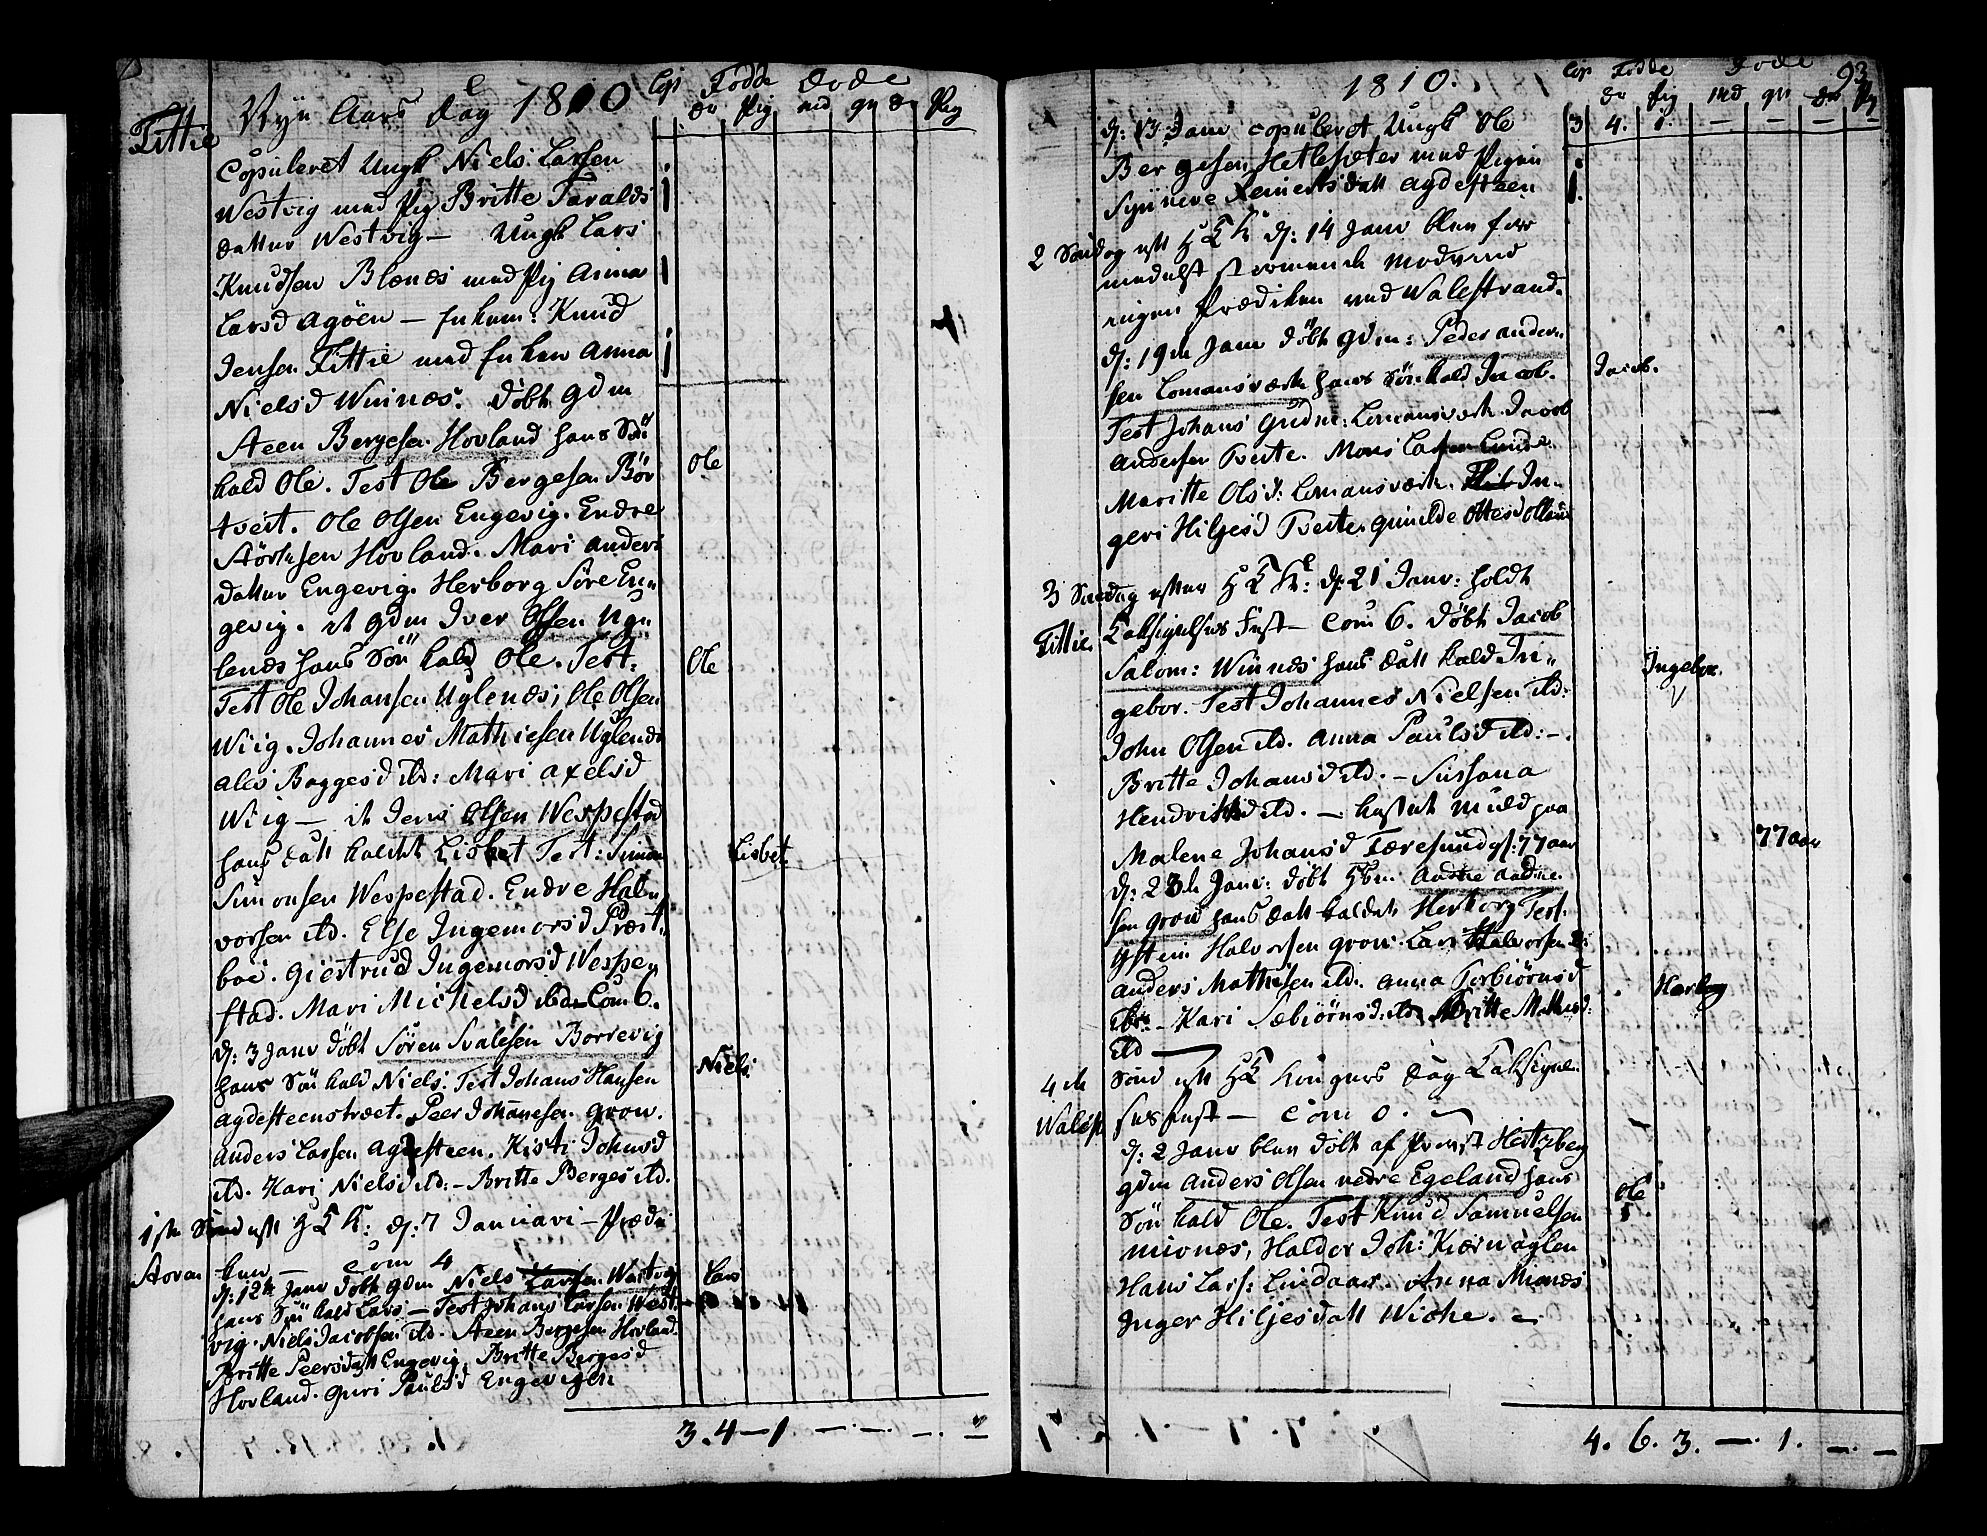 Nyu Aars dag 1810
Cop Födde Döde
Dr Pig md qu Dr Pig
Fittie
Copuleret Ungk Niels Larsen
Westvig med Pig Britte Taralds
datter Westvig — Ungk Lars
Knudsen Blænes med Pig Anna
Larsd Agöen — Enkem: Knud
Jensen Fittie med Enken Anna
Nielsd Winnæs. Döbt Gdm
Aeen Bergesen Hovland hans Sön
kald Ole. Test Ole Bergesen Bör
Ole
tveit. Ole Olsen Engevig. Endre
Störksen Hovland. Mari Anders
datter Engevig. Herborg Söre En„
gevig. it Gdm Iver Olsen Ug„
lenes hans Sön kald Ole. Test:
Ole
Test Ole Johansen Uglenæs; Ole Olsen
Wiig. Johannes Mathiesen Uglenæs
Ales Baggesd ibd: Mari Axelsd
Wiig — it Jens Olsen Wespestad
hans datt kaldet Lisbet Test: Simon
Lisbet
Simonsen Wespestad. Endre Hal„
vorsen ibd. Else Ingemorsd Præst„
boe. Giertrud Ingemorsd Wespe„
stad. Mari Michelsd ibd. Com 6.
d: 3 Janr döbt Sören Salesen Borrevig
hans Sön kald Niels. Test Johans Hansen
Niels.
Agdesteenstræet. Peer Johannesen Grow.
Anders Larsen Agdesteen. Kisti Johansd
ibd. Kari Nielsd ibd: – Britte Berges ibd.
1ste Sönd eft H 3 K: d: 7 Januari – Prædi
Storøen ken — Com 4
d: 12te Janr döbt Gdm Niels Larsen Westvig
Lars
hans Sön kald Lars — Test Johans Larsen West„
vig. Niels Jacobsen ibd. Aeen Bergesen Hovland
Britte Peersdatt Engevig, Britte Bergesd
Hovland. Guri Paulsd Engevigen
3. 4 — 1 — — — —
1810.
Cop Födde Döde 93
Dr Pig md qu Dr Pig
3 4. 1. — — — —
d: 13 Janr copuleret Ungk Ole
Bergesen Hetlesæter med Pigen
Synneve Reinertsdatt Agdesteen
2 Söndag eft H 3 K d: 14 Janr blev for
medelst stormende Modvind
ingen Prædiken ved Walestrand.
d: 19de Janr döbt Gdm: Peder Anders
sen Lomansværk hans Sön kald Jacob.
Jacob.
Test Johans Gudm: Lomansværk. Jacob
Andersen Tveite. Mons Larsen Lunde
Maritte Olsd: Lomansværk. In„
geri Hiljesd Tveite. Gunilde Ottesd
3 Söndag efter H 3 K: d: 21 Janr: holdt
Fittie. Taksigelses Fest — Com 6. Döbt Jacob
Salom: Winnes hans datt kald In„
Ingebor.
gebor. Test Johannes Nielsen ibd:
John Olsen ibd. Anna Paulsd ibd: —.
Britte Johansd ibd. — Sussana
Hendriksd ibd. — kastet Muld paa
Malene Johansd Færesund gl: 77 aar
77 aar
d: 23de Janr: döbt Hbm. Andne Andne
sen Grow hans datt kaldet Herborg Test.
Östein Halvorsen Grow. Lars Halvorsen ibd
Anders Mathisen ibd. Anna Torbiörnsd
Herborg
ibd. – Kari Sæbiörnsd: ibd Britte Mathisd:
ibd —
4de Sönd eft H 3 Kongers dag Taksigel„
Walest ses fest — Com 0. —
d: 2 Janr blev döbt af Provst Hertzberg
Gdm Anders Olsen nedre Egeland hans
Ole
Sön kald Ole. Test Knud Samuelsen
Mionæs, Haldor Joh: Kiærvaglen
Hans Lars: Lindaas. Anna Mionæs
Inger Hiljesdatt Wiche. —
4. 6. 3. —. 1. —. —